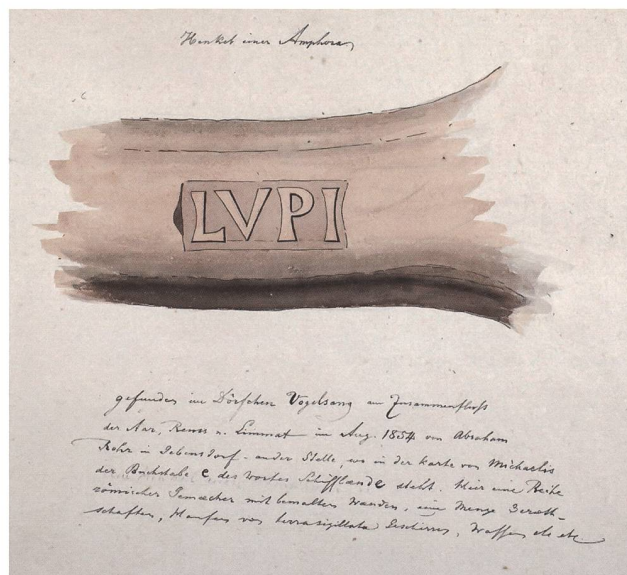 Henkel einer Amphora
LVPI
gefunden im Dörfchen Vogelsang am Zusammenfluss
der Aar, Reuss u. Limmat im Aug. 1854 von Abraham
Rohr in Gebensdorf - an der Stelle, wo in der Karte von Michaelis
der Buchstabe e, des Wortes Schifflände steht. Hier eine Reihe
römischer Gemächer mit bemalten Wänden, eine Menge Geräth-
schaften, Haufen von terra sigillata Geschirren, Waffen etc etc